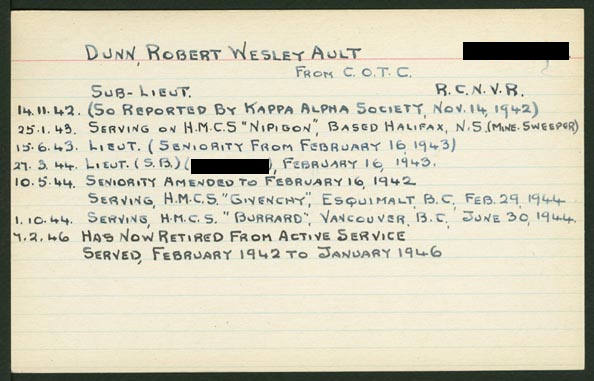 DUNN, ROBERT WESLEY AULT
FROM C.O.T.C.
SUB-LIEUT. R.C.N.V.R.
14.11.42. (SO REPORTED BY KAPPA ALPHA SOCIETY, NOV. 14, 1942)
25.1.43. SERVING ON H.M.C.S "NIPIGON", BASED HALIFAX, N.S. (MINE-SWEEPER)
15.6.43. LIEUT. (SENIORITY FROM FEBRUARY 16, 1943)
27.3.44. LIEUT. (S.B.) ( ), FEBRUARY 16, 1943.
10.5.44. SENIORITY AMENDED TO FEBRUARY 16, 1942
SERVING, H.M.C.S. "GIVENCHY", ESQUIMALT, B.C, FEB. 29, 1944
1.10.44. SERVING, H.M.C.S. "BURRARD", VANCOUVER, B.C, JUNE 30, 1944.
7.2.46 HAS NOW RETIRED FROM ACTIVE SERVICE
SERVED, FEBRUARY 1942 TO JANUARY 1946